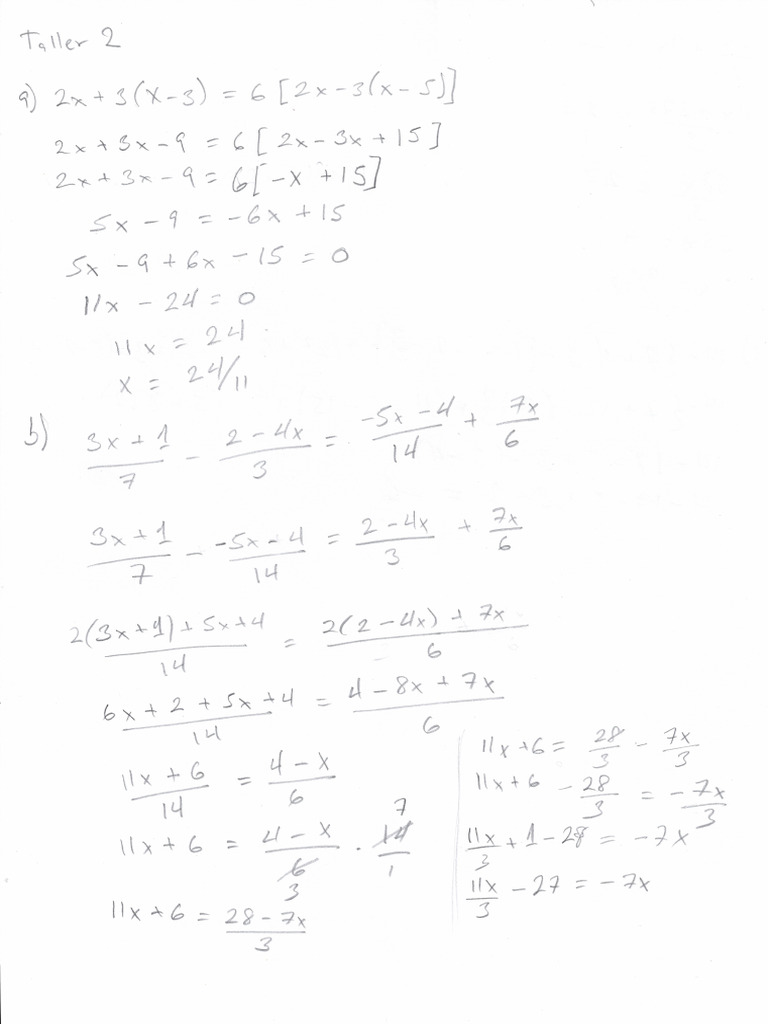 Taller 2
a) 2x + 3(x-3) = 6 [2x-3(x-5)]
2x + 3x - 9 = 6[2x - 3x + 15]
2x + 3x - 9 = 6[-x + 15]
5x - 9 = -6x + 15
5x - 9 + 6x - 15 = 0
11x - 24 = 0
11x = 24
x = 24/11
b) (3x + 1)/7 - (2 - 4x)/3 = (-5x - 4)/14 + 7x/6
(3x + 1)/7 - (-5x - 4)/14 = (2 - 4x)/3 + 7x/6
(2(3x+1) + 5x + 4)/14 = (2(2 - 4x) + 7x)/6
(6x + 2 + 5x + 4)/14 = (4 - 8x + 7x)/6
(11x + 6)/14 = (4 - x)/6
11x + 6 = (4 - x)/6 3 · 14/1 7
11x + 6 = (28 - 7x)/3
11x + 6 = 28/3 - 7x/3
11x + 6 - 28/3 = -7x/3
11x/3 + 1 - 28 = -7x
11x/3 - 27 = -7x